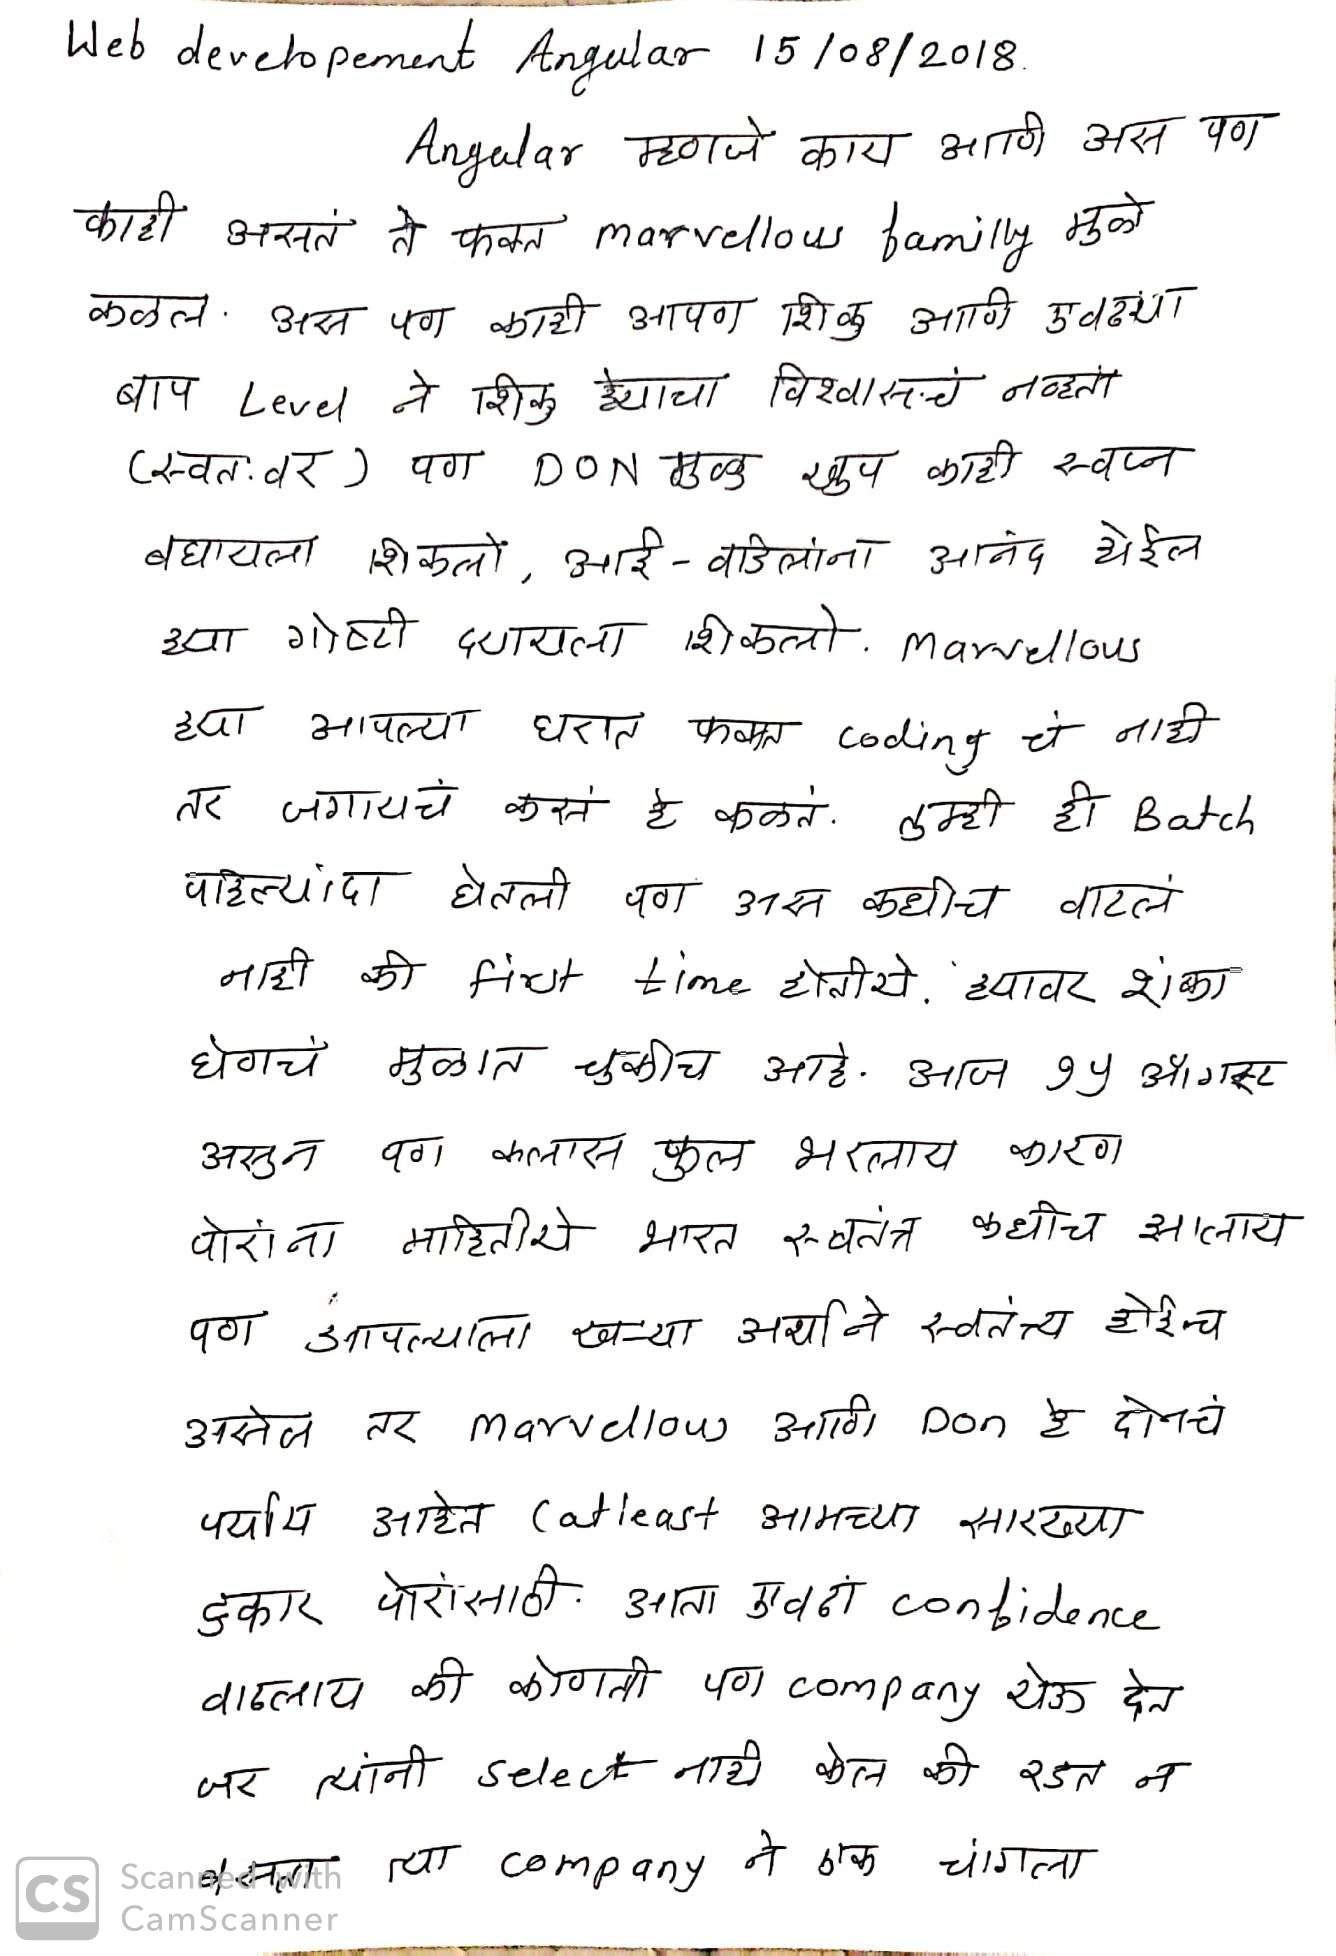 Web developement Angular 15/08/2018.
Angular म्हणजे काय आणि अस पण
काही असतं ते फक्त marvellous familly मुळे
कळल. अस पण काही आपण शिकु आणि एवढ्या
बाप Level ने शिकु ह्याचा विश्वासचं नव्हता
(स्वतःवर) पण DON मुळे खुप काही स्वप्न
बघायला शिकलो, आई-वडिलांना आनंद येईल
ह्या गोष्टी द्यायला शिकलो. Marvellous
ह्या आपल्या घरात फक्त coding चं नाही
तर जगायचं कसं हे कळतं. तुम्ही ही Batch
पहिल्यांदा घेतली पण अस कधीच वाटलं
नाही की first time होतीये. ह्यावर शंका
घेणचं मुळात चुकीच आहे. आज १५ ऑगस्ट
असुन पण क्लास फुल भरलाय कारण
पोरांना माहितीये भारत स्वतंत्र कधीच झालाय
पण आपल्याला खऱ्या अर्थाने स्वतंत्र्य होईच
असेल तर Marvellous आणि Don हे दोनचं
पर्याय आहेत (atleast आमच्या सारख्या
टुकार पोरांसाठी. आता एवढां confidence
वाढलाय की कोणती पण company येऊ देत
जर त्यांनी select नाही केल की रडत न
बसता त्या company ने एक चांगला
CS Scanned with
CamScanner